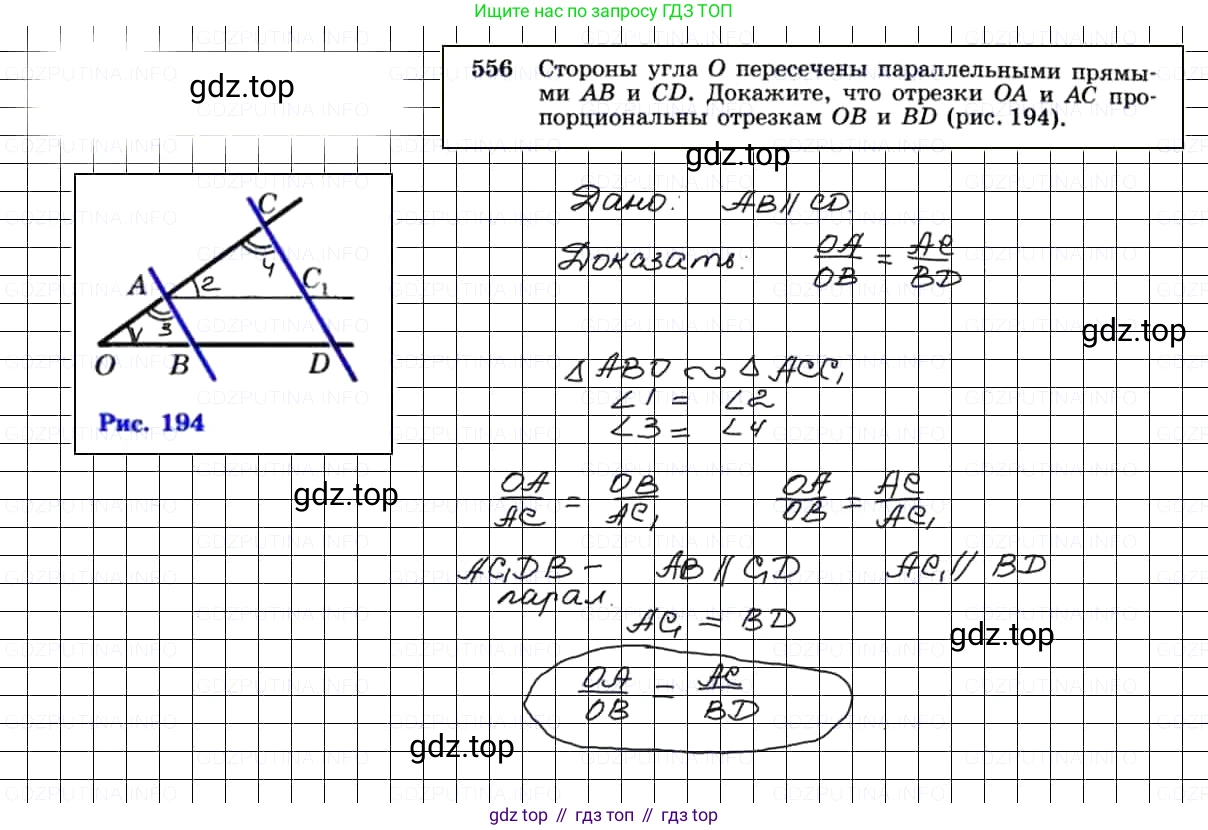 Ищите нас по запросу ГДЗ ТОП
gdz.top
556 Стороны угла O пересечены параллельными прямы-
ми AB и CD. Докажите, что отрезки OA и AC про-
порциональны отрезкам OB и BD (рис. 194).
gdz.top
C
4
C₁
A
2
3
O
B
D
Рис. 194
Дано: AB // CD
Доказать: OA/OB = AC/BD
gdz.top
△ ABO ∾ △ ACC₁
∠1 = ∠2
∠3 = ∠4
gdz.top
OA/AC = OB/AC₁ OA/OB = AC/AC₁
AC₁DB – AB // C₁D AC₁ // BD
парал.
AC₁ = BD
gdz.top
OA/OB = AC/BD
gdz.top
gdz top // гдз топ // gdz top
GDZPUTINA.INFO